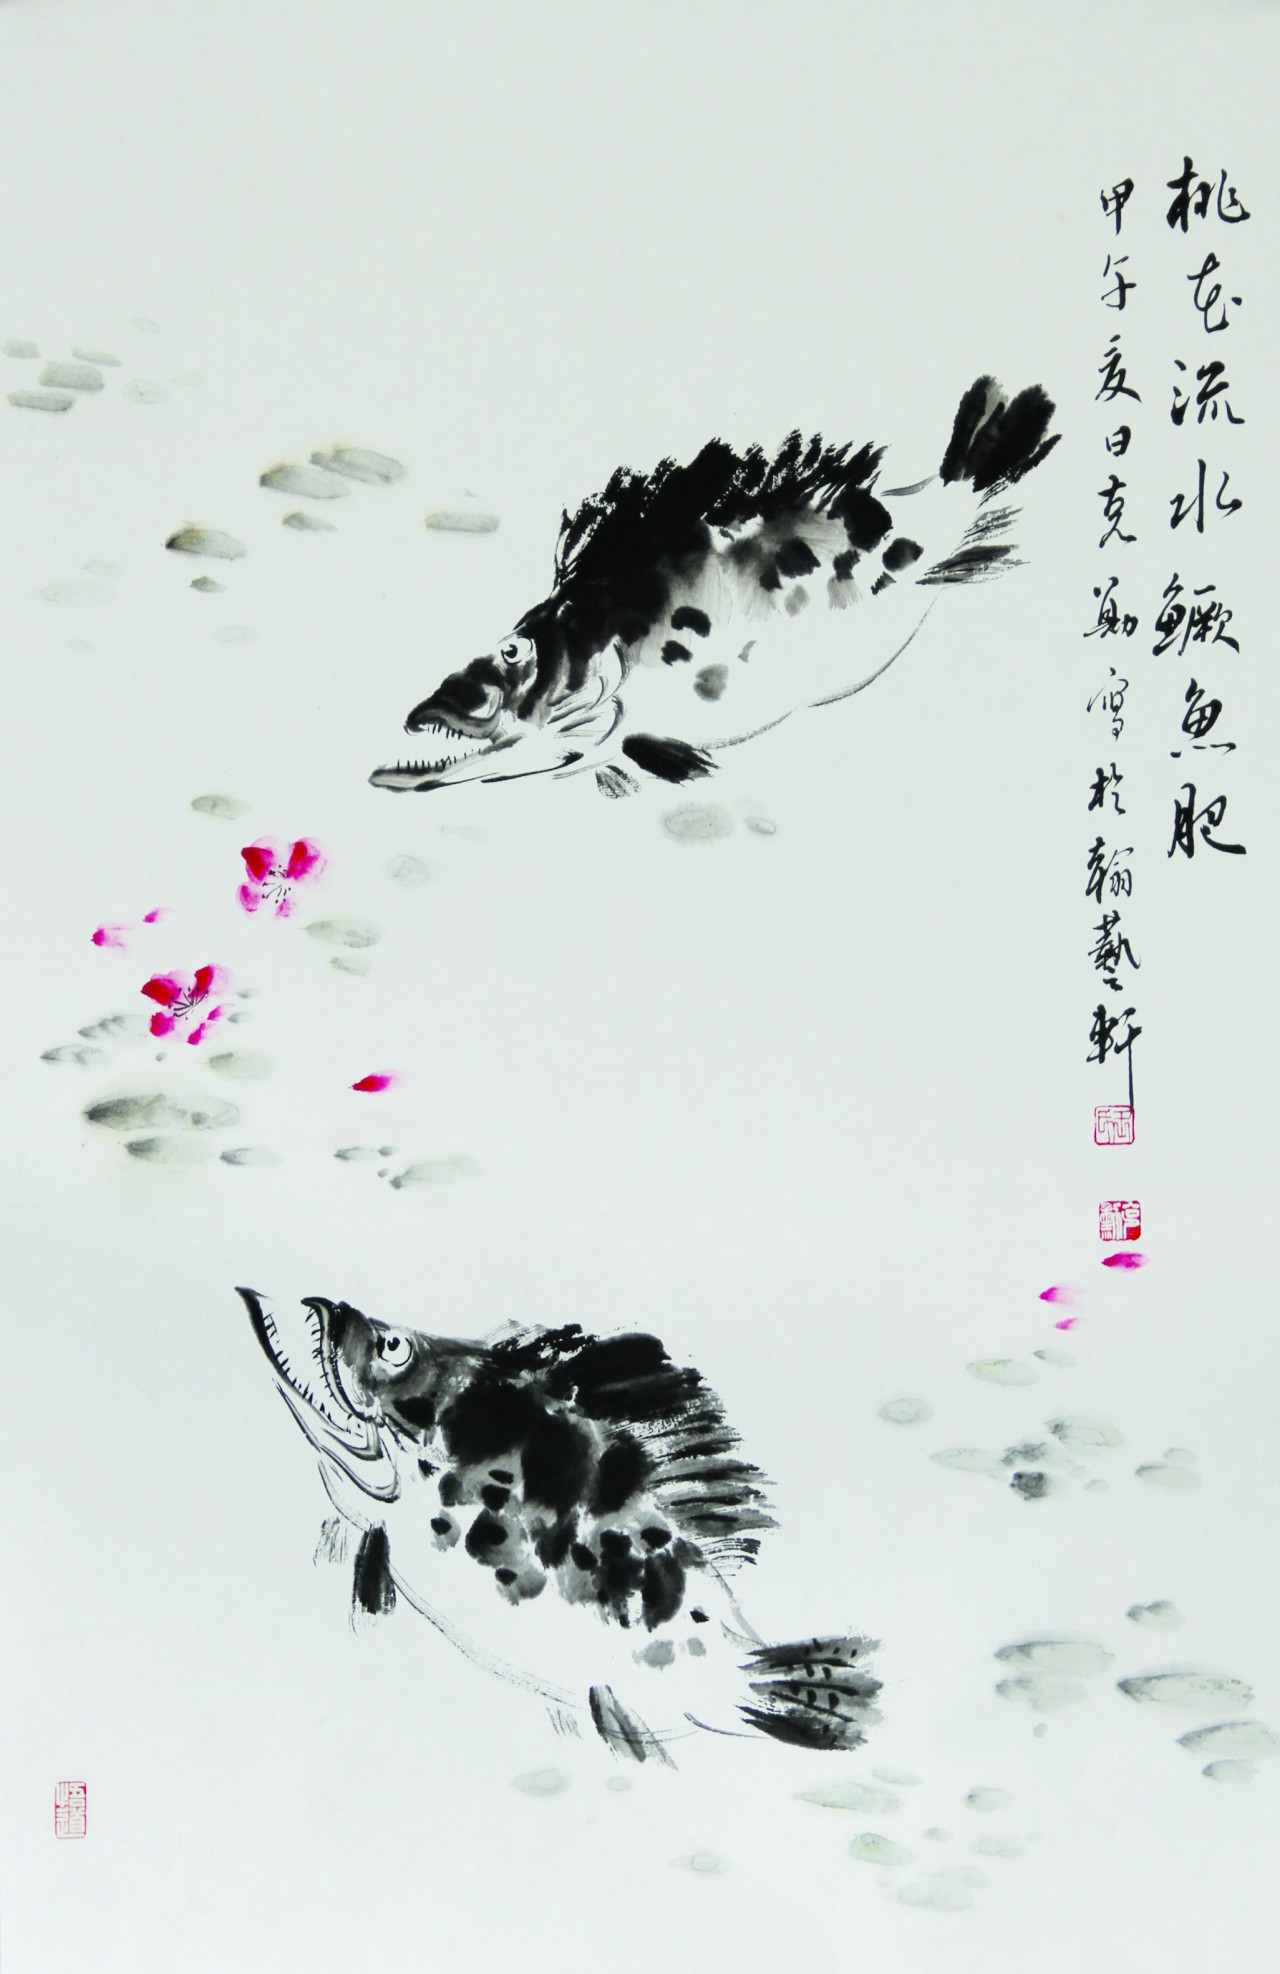 桃花流水鳜鱼肥
甲午夏日克勤寫於翰藝軒
悟道